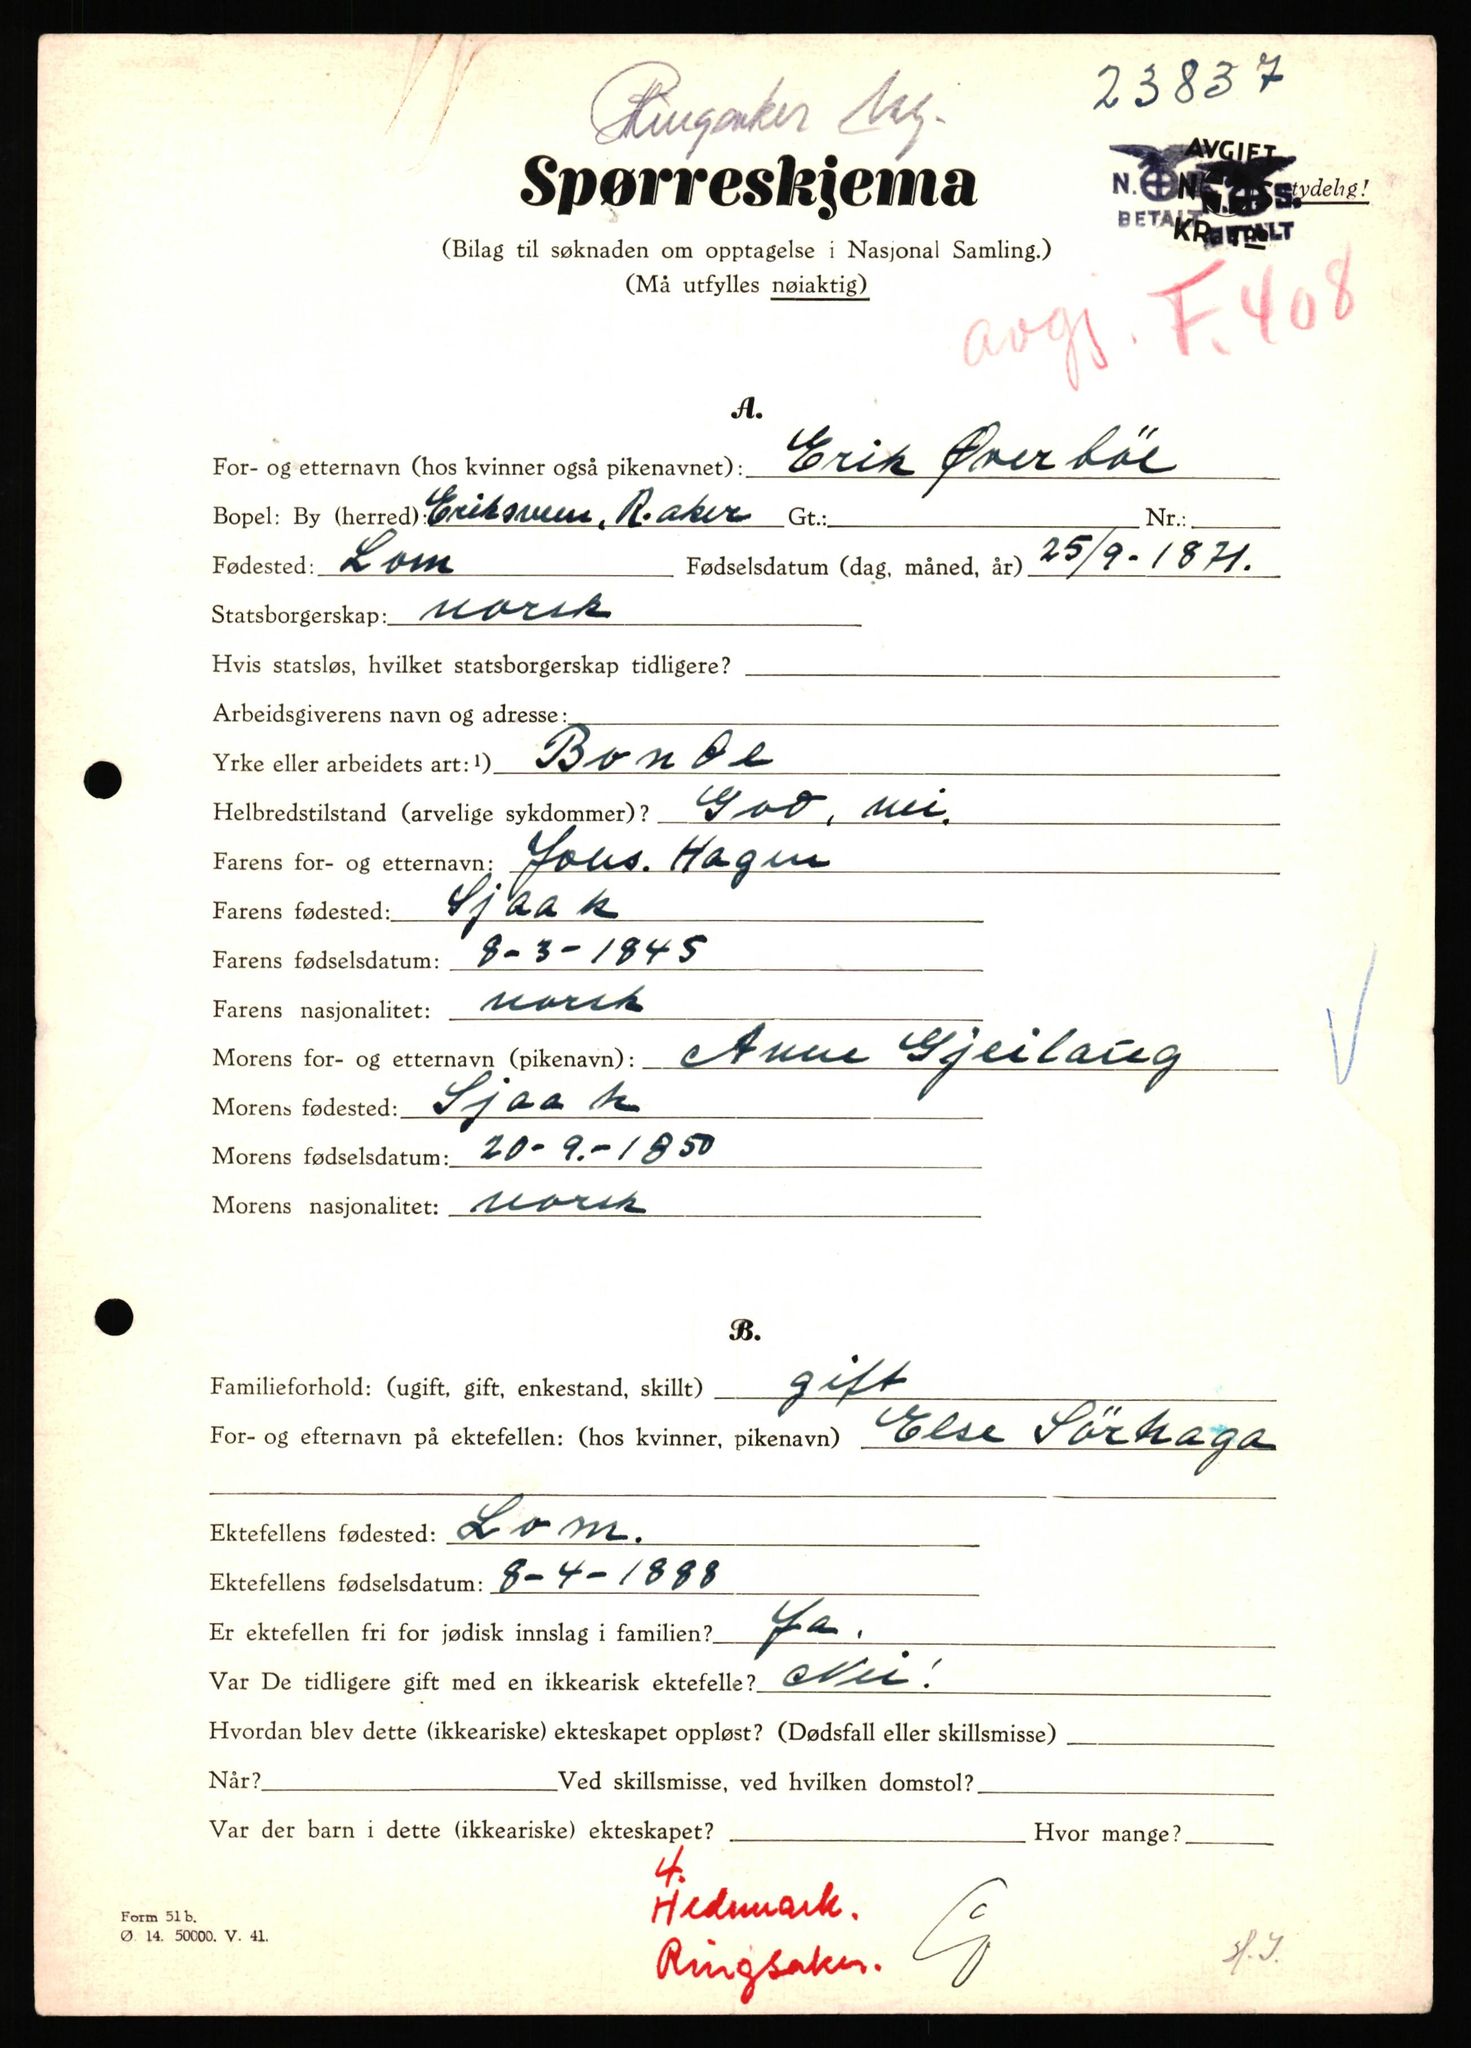 23837
Ringsaker lag.
AVGIFT
N. S.
BETALT
KR.
BETALT
tydelig!
Spørreskjema
(Bilag til søknaden om opptagelse i Nasjonal Samling.)
(Må utfylles nøiaktig)
avgj. F. 408
A.
For- og etternavn (hos kvinner også pikenavnet): Erik Øverböe
Bopel: By (herred): Eriksveen, R.aker Gt.: Nr.:
Fødested: Lom Fødselsdatum (dag, måned, år) 25/9-1871.
Statsborgerskap: norsk
Hvis statsløs, hvilket statsborgerskap tidligere?
Arbeidsgiverens navn og adresse:
Yrke eller arbeidets art: ¹) Bonde
Helbredstilstand (arvelige sykdommer)? God, nei.
Farens for- og etternavn: Johs. Hagen
Farens fødested: Sjaak
Farens fødselsdatum: 8-3-1845
Farens nasjonalitet: norsk
Morens for- og etternavn (pikenavn): Anne Gjeilaug
Morens fødested: Sjaak
Morens fødselsdatum: 20-9.-1850
Morens nasjonalitet: norsk
B.
Familieforhold: (ugift, gift, enkestand, skillt) gift
For- og efternavn på ektefellen: (hos kvinner, pikenavn) Else Sörhaga
Ektefellens fødested: Lom.
Ektefellens fødselsdatum: 8-4-1888
Er ektefellen fri for jødisk innslag i familien? Ja.
Var De tidligere gift med en ikkearisk ektefelle? Nei!
Hvordan blev dette (ikkeariske) ekteskapet oppløst? (Dødsfall eller skillsmisse)
Når? Ved skillsmisse, ved hvilken domstol?
Var der barn i dette (ikkeariske) ekteskapet? Hvor mange?
4.
Hedmark.
Ringsaker.
Form 51 b.
Ø. 14. 50000. V. 41.